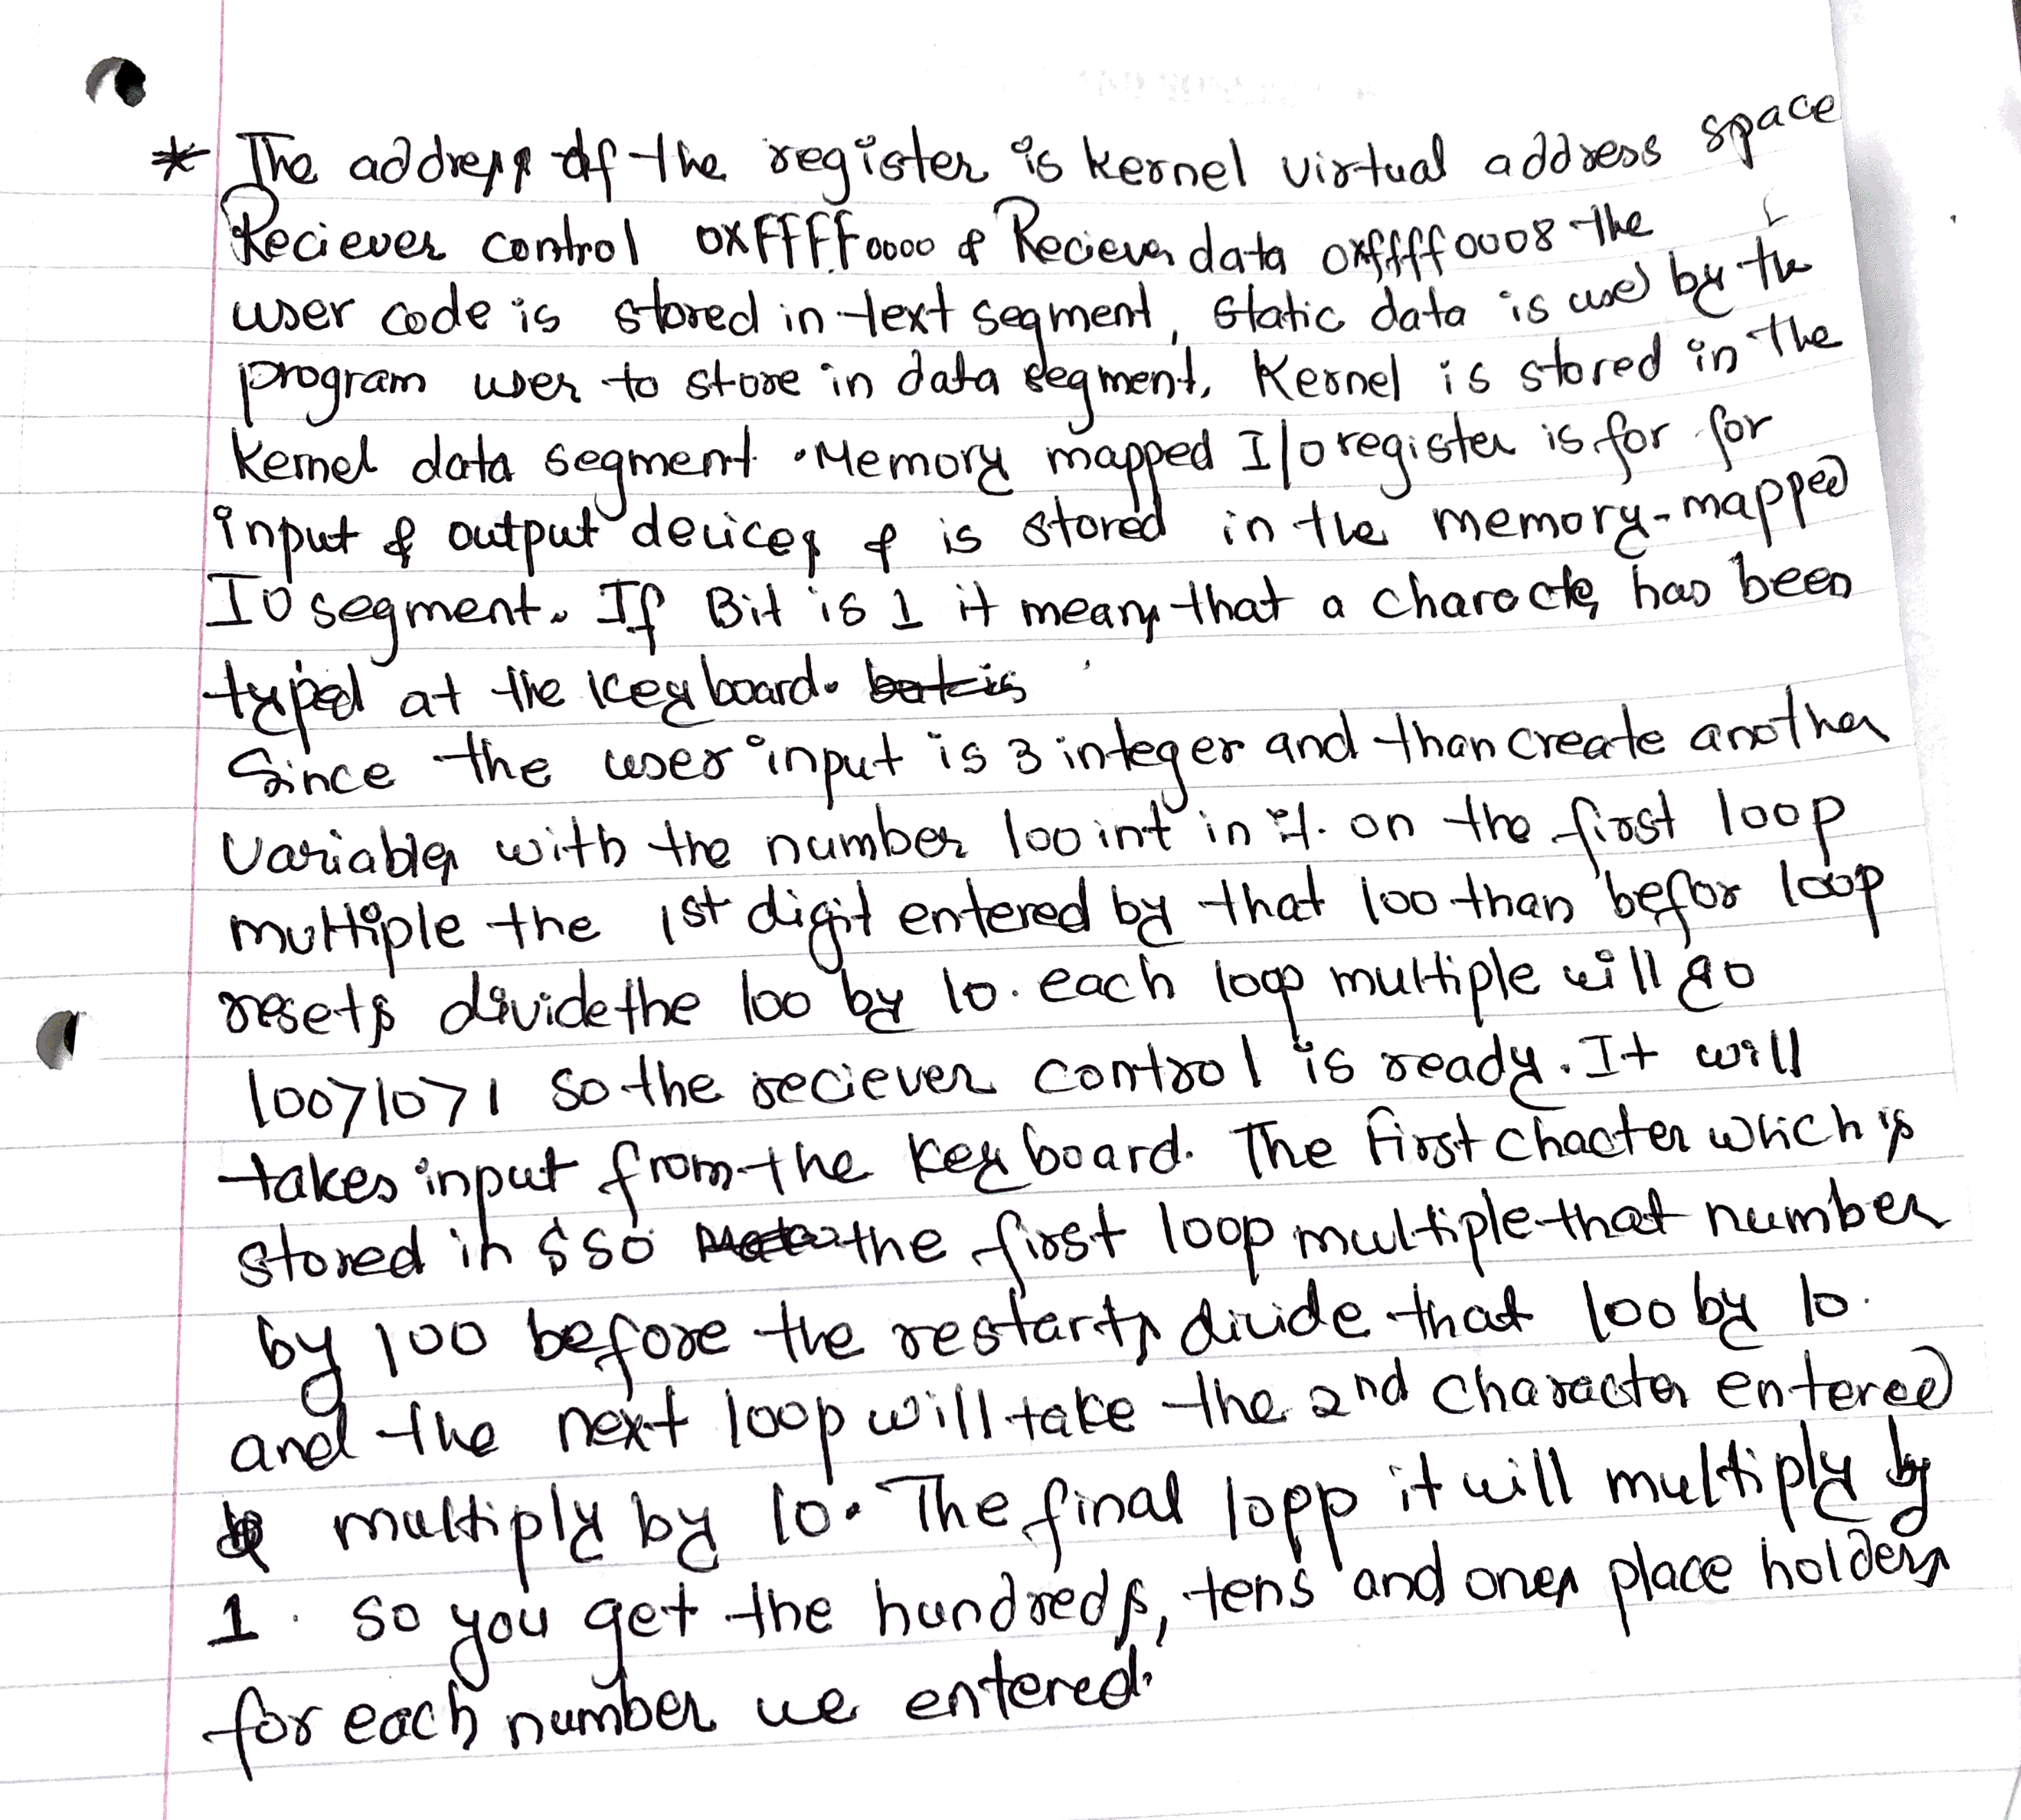 * The address of the register is kernel virtual address space
Reciever control 0xFFFF0000 & Reciever data 0xffff0008 the
user code is stored in text segment, static data is used by the
program user to store in data segment. Kernel is stored in the
kernel data segment. Memory mapped I/O register is for for
input & output devices & is stored in the memory-mapped
IO segment. If Bit is 1 it means that a characte has been
typed at the keyboard.
Since the user input is 3 integer and than create another
variables with the number 100 int in it. on the first loop
multiple the 1st digit entered by that 100 than befor loop
resets divide the 100 by 10. each loop multiple will go
100>10>1 so the reciever control is ready. It will
takes input from the keyboard. The first chacter which is
stored in $s0 the first loop multiple that number
by 100 before the restarts divide that 100 by 10.
and the next loop will take the 2nd character entered
multiply by 10. The final lopp it will multiply by
1. so you get the hundreds, tens and ones place holders
for each number we entered.